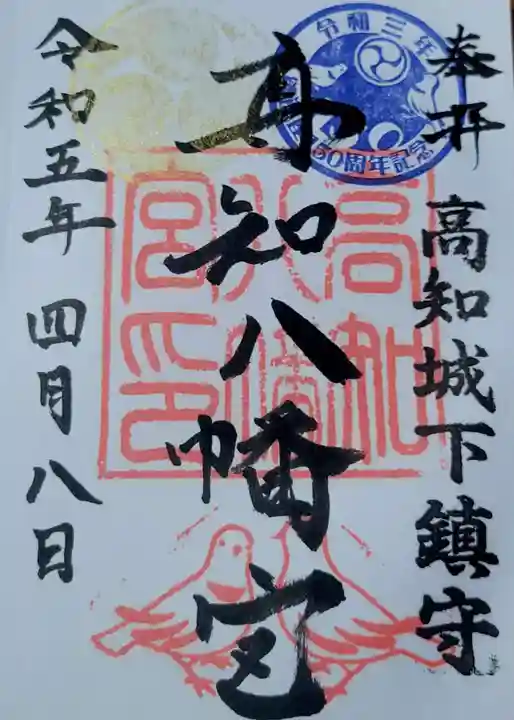 奉拝 高知城下鎮守
高知八幡宮
令和五年 四月八日
令和三年
50周年記念
高知八幡宮印